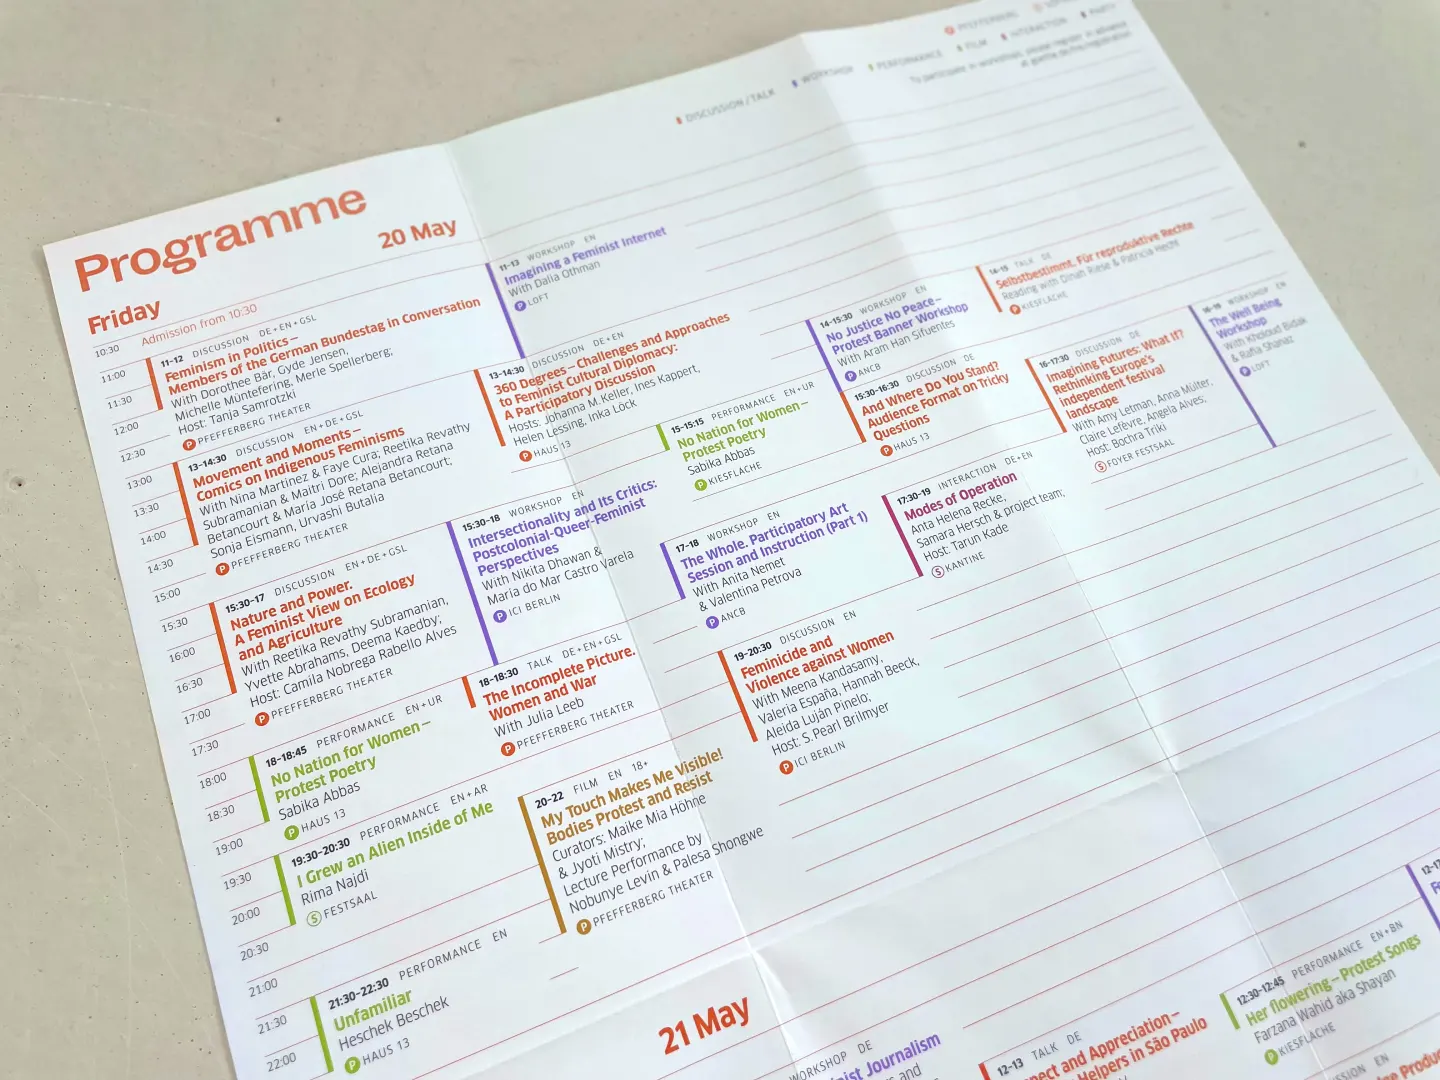 PFEFFERBERG
DISCUSSION / TALK
WORKSHOP
PERFORMANCE
FILM
INTERACTION
PARTY
To participate in workshops, please register in advance
Programme
Friday
20 May
Admission from 10:30
10:30
11:00
11:30
12:00
12:30
13:00
13:30
14:00
14:30
15:00
15:30
16:00
16:30
17:00
17:30
18:00
18:30
19:00
19:30
20:00
20:30
21:00
21:30
22:00
11–12 DISCUSSION DE+EN+GSL
Feminism in Politics –
Members of the German Bundestag in Conversation
With Dorothee Bär, Gyde Jensen,
Michelle Müntefering, Merle Spellerberg;
Host: Tanja Samrotzki
P PFEFFERBERG THEATER
13–14:30 DISCUSSION EN+DE+GSL
Movement and Moments –
Comics on Indigenous Feminisms
With Nina Martinez & Faye Cura; Reetika Revathy
Subramanian & Maitri Dore; Alejandra Retana
Betancourt & María José Retana Betancourt;
Sonja Eismann, Urvashi Butalia
P PFEFFERBERG THEATER
15:30–17 DISCUSSION EN+DE+GSL
Nature and Power.
A Feminist View on Ecology
and Agriculture
With Reetika Revathy Subramanian,
Yvette Abrahams, Deema Kaedby;
Host: Camila Nobrega Rabello Alves
P PFEFFERBERG THEATER
18–18:45 PERFORMANCE EN+UR
No Nation for Women –
Protest Poetry
Sabika Abbas
P HAUS 13
19:30–20:30 PERFORMANCE EN+AR
I Grew an Alien Inside of Me
Rima Najdi
S FESTSAAL
21:30–22:30 PERFORMANCE EN
Unfamiliar
Heschek Beschek
P HAUS 13
11–13 WORKSHOP EN
Imagining a Feminist Internet
With Dalia Othman
P LOFT
13–14:30 DISCUSSION DE+EN
360 Degrees – Challenges and Approaches
to Feminist Cultural Diplomacy:
A Participatory Discussion
Hosts: Johanna M. Keller, Ines Kappert,
Helen Lessing, Inka Löck
P HAUS 13
15:30–18 WORKSHOP EN
Intersectionality and Its Critics:
Postcolonial-Queer-Feminist
Perspectives
With Nikita Dhawan &
María do Mar Castro Varela
P ICI BERLIN
18–18:30 TALK DE+EN+GSL
The Incomplete Picture.
Women and War
With Julia Leeb
P PFEFFERBERG THEATER
20–22 FILM EN 18+
My Touch Makes Me Visible!
Bodies Protest and Resist
Curators: Maike Mia Höhne
& Jyoti Mistry;
Lecture Performance by
Nobunye Levin & Palesa Shongwe
P PFEFFERBERG THEATER
15–15:15 PERFORMANCE EN+UR
No Nation for Women –
Protest Poetry
Sabika Abbas
P KIESFLÄCHE
17–18 WORKSHOP EN
The Whole. Participatory Art
Session and Instruction (Part 1)
With Anita Nemet
& Valentina Petrova
P ANCB
19–20:30 DISCUSSION EN
Feminicide and
Violence against Women
With Meena Kandasamy,
Valeria España, Hannah Beeck,
Aleida Luján Pinelo;
Host: S Pearl Brilmyer
P ICI BERLIN
14–15:30 WORKSHOP EN
No Justice No Peace –
Protest Banner Workshop
With Aram Han Sifuentes
P ANCB
15:30–16:30 DISCUSSION DE
And Where Do You Stand?
Audience Format on Tricky
Questions
P HAUS 13
17:30–19 INTERACTION DE+EN
Modes of Operation
Anta Helena Recke,
Samara Hersch & project team;
Host: Tarun Kade
S KANTINE
14–15 TALK DE
Selbstbestimmt. Für reproduktive Rechte
Reading with Dinah Riese & Patricia Hecht
P KIESFLÄCHE
16–17:30 DISCUSSION DE
Imagining Futures: What If?
Rethinking Europe's
independent festival
landscape
With Amy Letman, Anna Mülter,
Claire Lefèvre, Angela Alves;
Host: Bochra Triki
S FOYER FESTSAAL
16–18 WORKSHOP EN
The Well Being
Workshop
With Kholoud Bidak
& Rafia Shanaz
P LOFT
21 May
WORKSHOP DE
Journalism
and
12–13 TALK DE
and Appreciation –
Helpers in São Paulo
12:30–12:45 PERFORMANCE EN+BN
Her flowering – Protest Songs
Farzana Wahid aka Shayan
P KIESFLÄCHE
EN